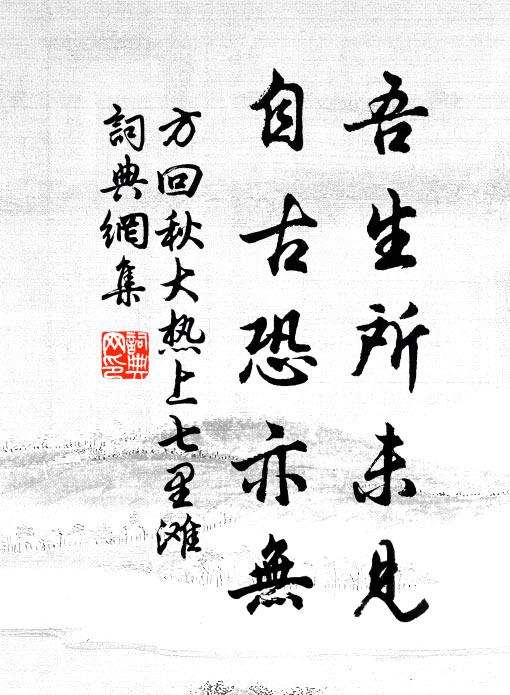 吾生所未見
自古恐亦無
方回秋大热上七里滩
詞典網集
詞典網印